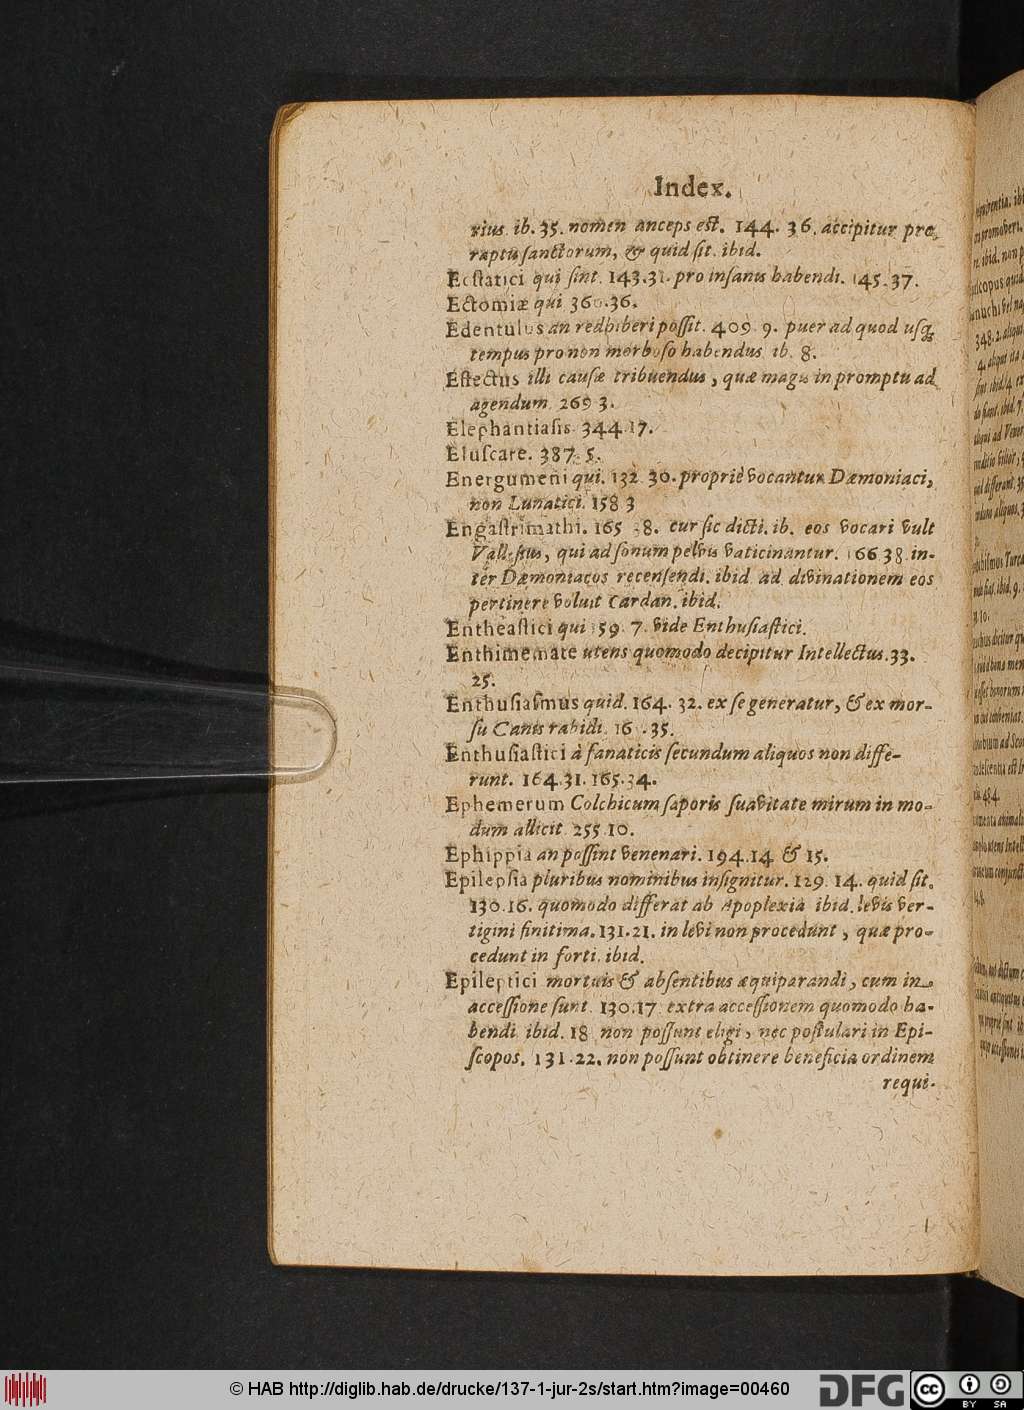 Index.
rius. ib. 35. nomen anceps est. 144. 36. accipitur pro
raptu sanctorum, & quid sit. ibid.
Ecstatici qui sint. 143.31. pro insanis habendi. 145.37.
Ectomiæ qui 360.36.
Edentulus an redhiberi possit. 409. 9. puer ad quod usq;
tempus pro non morboso habendus ib. 8.
Effectus illi causæ tribuendus, quæ magis in promptu ad
agendum. 269 3.
Elephantiasis. 344.17.
Eluscare. 387. 5.
Energumeni qui. 132. 30. propriè vocantur Dæmoniaci,
non Lunatici. 158 3
Engastrimathi. 165 38. cur sic dicti. ib. eos vocari vult
Vallesius, qui ad sonum pelvis vaticinantur. 166 38. in-
ter Dæmoniacos recensendi. ibid ad divinationem eos
pertinere voluit Cardan. ibid.
Entheastici qui 159. 7. vide Enthusiastici.
Enthimemate utens quomodo decipitur Intellectus. 33.
25.
Enthusiasmus quid. 164. 32. ex se generatur, & ex mor-
su Canis rabidi. .35.
Enthusiastici à fanaticis secundum aliquos non diffe-
runt. 164.31.165.34.
Ephemerum Colchicum saporis suavitate mirum in mo-
dum allicit. 255.10.
Ephippia an possint venenari. 194.14 & 15.
Epilepsia pluribus nominibus insignitur. 129. 14. quid sit.
130.16. quomodo differat ab Apoplexia ibid. levis ver-
tigini finitima. 131.21. in levi non procedunt, quæ pro-
cedunt in forti. ibid.
Epileptici mortuis & absentibus æquiparandi, cum in
accessione sunt. 130.17. extra accessionem quomodo ha-
bendi. ibid. 18 non possunt eligi, nec postulari in Epi-
scopos. 131.22. non possunt obtinere beneficia ordinem
requi-
© HAB http://diglib.hab.de/drucke/137-1-jur-2s/start.htm?image=00460
DFG
cc
BY SA